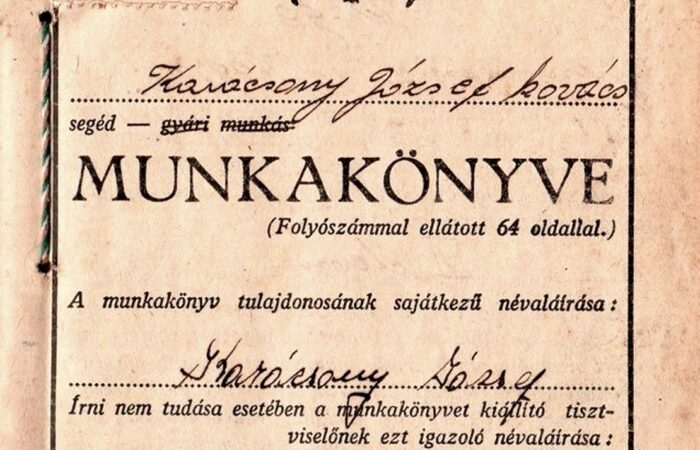 Karácsony József kovács
segéd — gyári munkás
MUNKAKÖNYVE
(Folyószámmal ellátott 64 oldallal.)
A munkakönyv tulajdonosának sajátkezű névaláírása :
Karácsony József
Írni nem tudása esetében a munkakönyvet kiállító tiszt-
viselőnek ezt igazoló névaláírása :